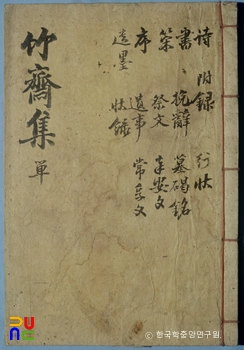 詩 附錄 行狀
書 挽辭 墓碣銘
策 祭文 奉安文
序 遺事 常享文
遺墨 狀錄
竹齋集 单
한국학중앙연구원